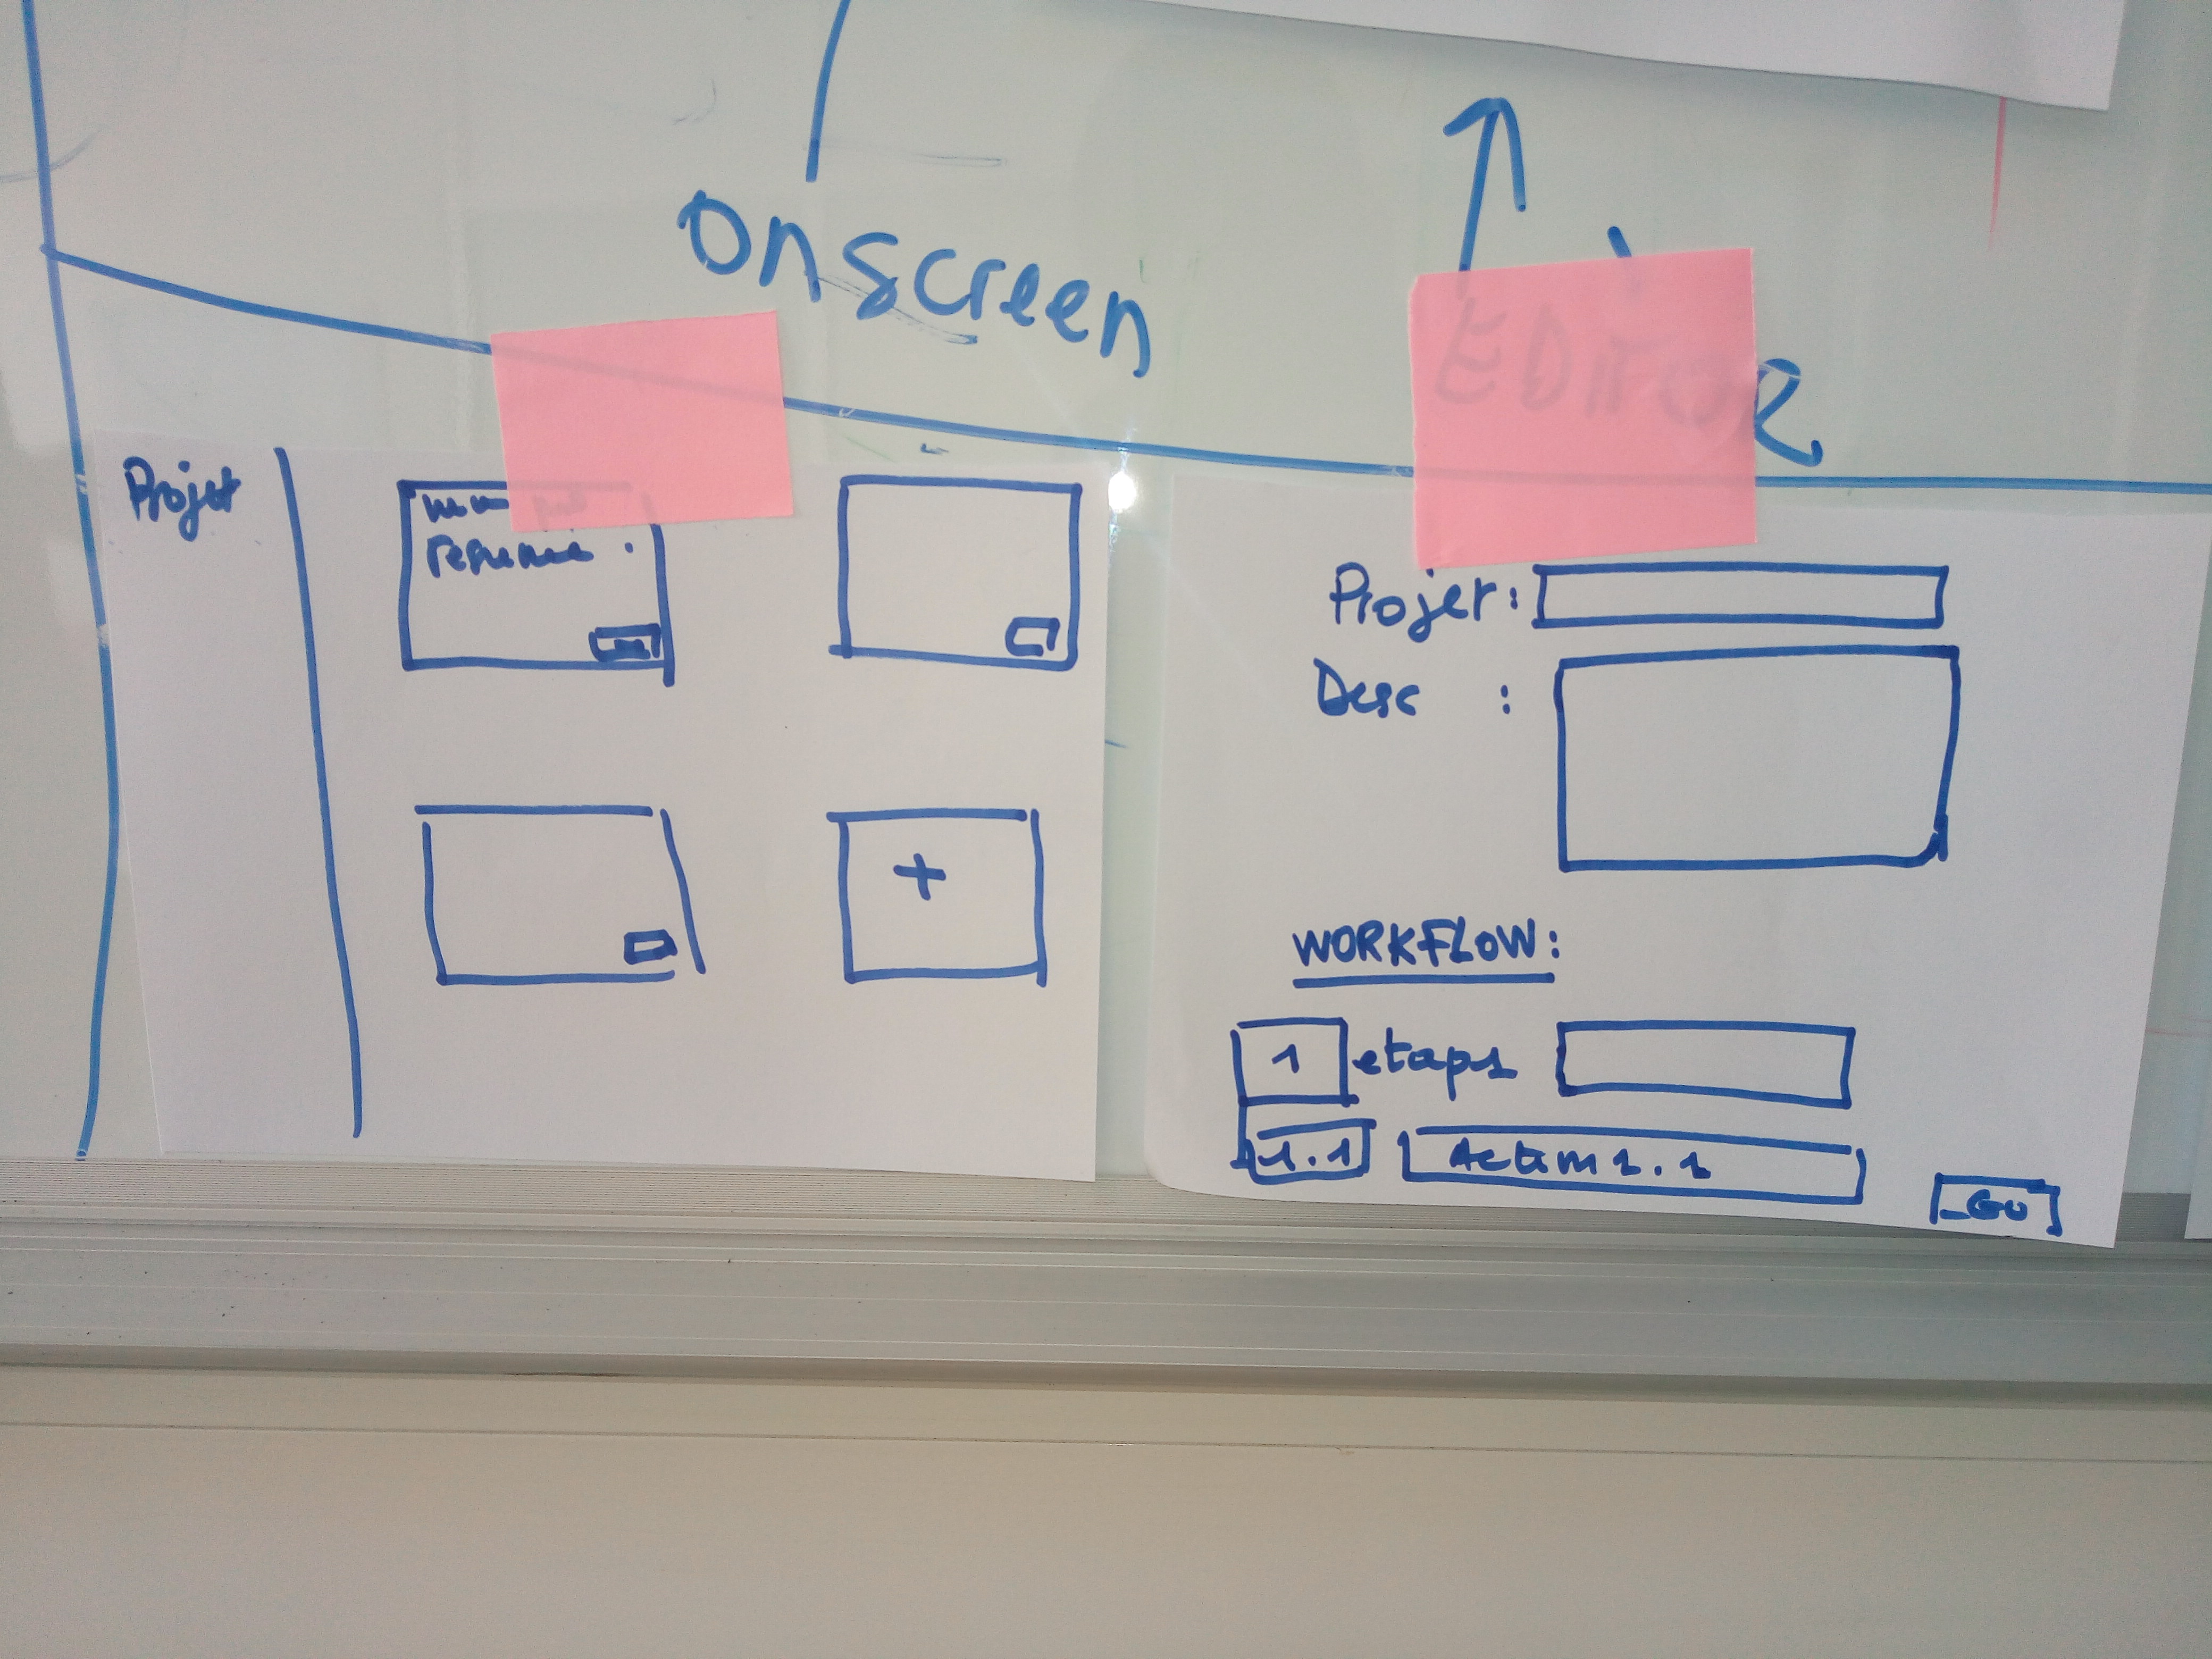 onscreen
EDITOR
Projet
resume.
+
Projet:
Desc :
WORKFLOW:
1 etaps
1.1 Action 1.1
Go